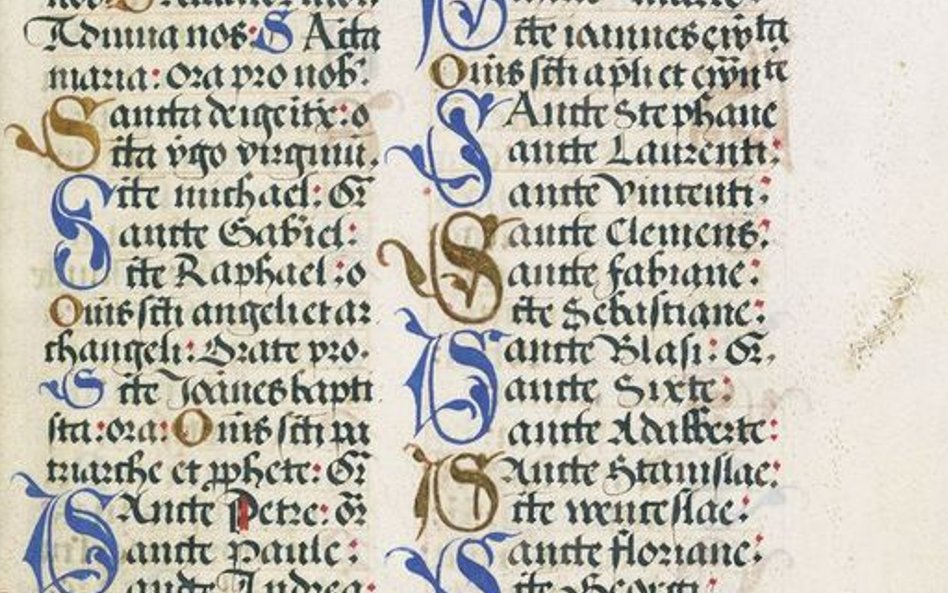 Adiuua nos: S Ancta
maria: ora pro nob:
Sancta dei geitx: o
Scta vgo virginū.
Scte michael: Or
Sancte Gabriel:
Scte Raphael: o
Ōnis scti angeli et ar
changeli: Orate pro.
Scte Joānes bapti
sta: ora: Ōnis scti pa
triarche et pphete: Or
SAncte Petre: or
Sancte Paule:
Sancte Andrea:
Scte ioannes
Ōnis scti apli et
SAncte Stephane
Sancte Laurenti:
Sancte Vincenti:
Sancte Clemens:
Sancte fabiane:
Scte Sebastiane:
Sancte Blasi: Or.
Sancte Sixte:
Sancte Adalberte:
SAncte Stanislae:
Scte wenceslae:
Sancte floriane:
Scte Georgi: